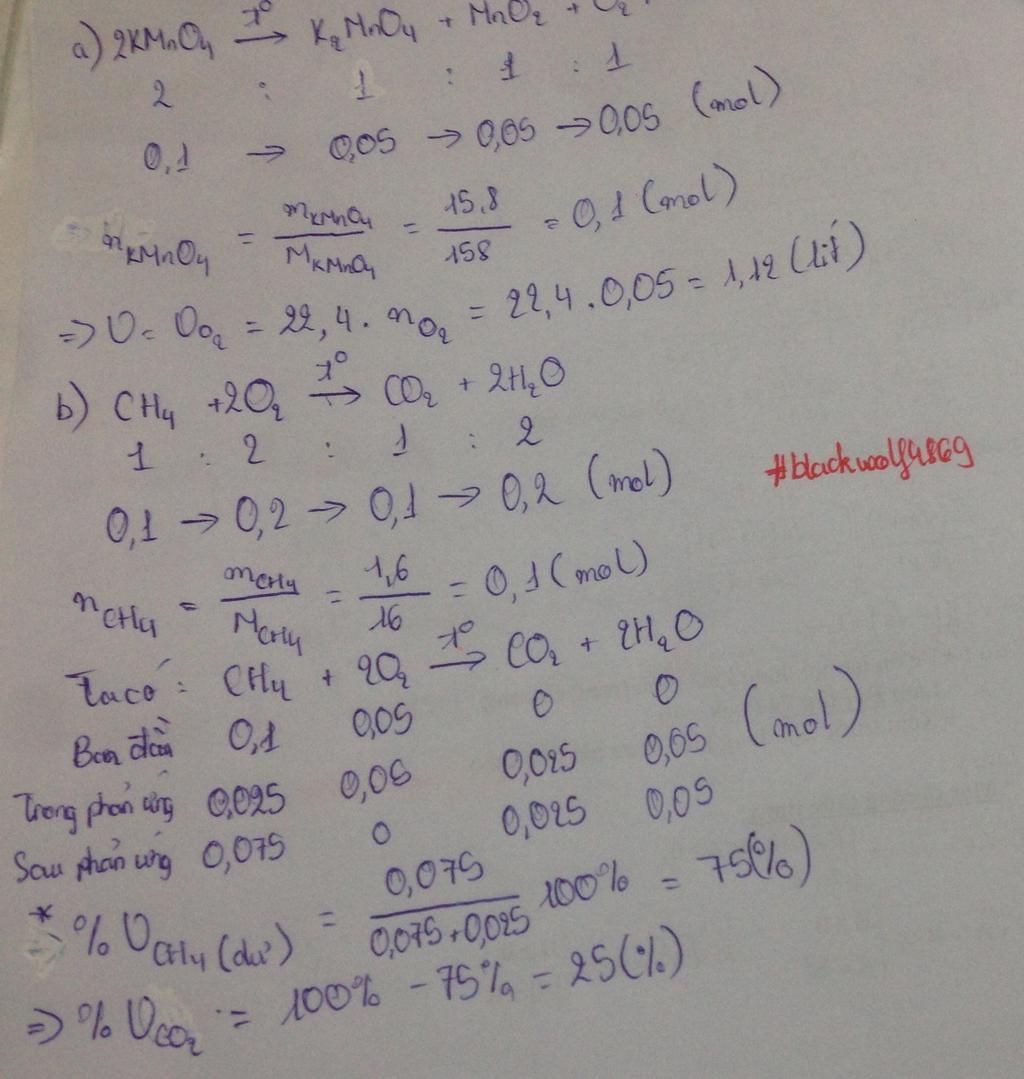 a) 2KMnO₄ →(t°) K₂MnO₄ + MnO₂ + O₂.
2 : 1 : 1 : 1
0,1 → 0,05 → 0,05 → 0,05 (mol)
nKMnO₄ = mKMnO₄/MKMnO₄ = 15,8/158 = 0,1 (mol)
=> V = VO₂ = 22,4 . nO₂ = 22,4 . 0,05 = 1,12 (lít)
b) CH₄ + 2O₂ →(t°) CO₂ + 2H₂O
1 : 2 : 1 : 2
0,1 → 0,2 → 0,1 → 0,2 (mol)
#blackwolf4869
nCH₄ = mCH₄/MCH₄ = 1,6/16 = 0,1 (mol)
Ta có: CH₄ + 2O₂ →(t°) CO₂ + 2H₂O
Ban đầu 0,1 0,05 0 0
Trong phản ứng 0,025 0,05 0,025 0,05 (mol)
Sau phản ứng 0,075 0 0,025 0,05
* => %VCH₄ (dư) = 0,075/(0,075+0,025) 100% = 75(%)
=> %VCO₂ = 100% - 75% = 25(%)